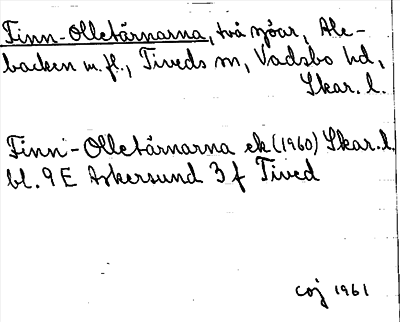 Finn-Olletärnarna, två sjöar, Ale-
backen m.fl., Tiveds sn, Vadsbo hd,
Skar. l.
Finn-Olletärnarna ek (1960) Skar. l.
bl. 9 E Askersund 3 f Tived
coj 1961